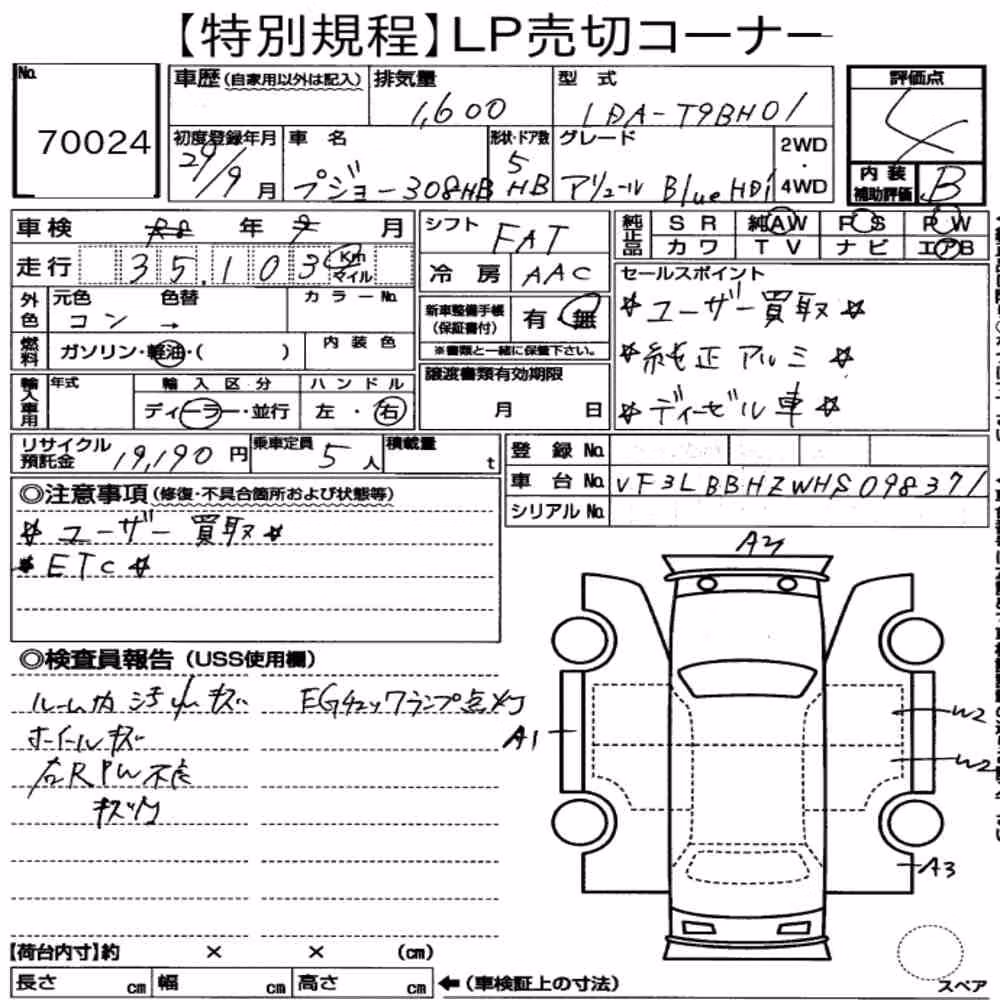 【特別規程】LP売切コーナー
No. 70024
車歴(自家用以外は記入)
排気量 1,600
型式 LDA-T9BH01
評価点 4
初度登録年月 29/9月
車名 プジョー308HB
形状・ドア数 5 HB
グレード アリュール BlueHDi
2WD・4WD
内装補助評価 B
車検 R8年9月
シフト FAT
純正品 SR 純AW PS PW
カワ TV ナビ エアB
走行 35,103 Km マイル
冷房 AAC
セールスポイント
*ユーザー買取*
*純正アルミ*
*ディーゼル車*
外色 元色 コン 色替 → カラーNo.
新車整備手帳(保証書付) 有 無
※書類と一緒に保管下さい。
燃料 ガソリン・軽油・( ) 内装色
輸入車用 年式 輸入区分 ディーラー・並行 ハンドル 左・右
譲渡書類有効期限 月 日
リサイクル預託金 19,190円
乗車定員 5人
積載量 t
登録No.
車台No. VF3LBBHZWHS098371
シリアルNo.
◎注意事項(修復・不具合箇所および状態等)
*ユーザー買取*
*ETC*
◎検査員報告(USS使用欄)
ルーム内汚れキズ
EGチェックランプ点灯
ホイールキズ
右RPW不良
A2
A1
W2
W2
A3
【荷台内寸】約 × × (cm)
長さ cm 幅 cm 高さ cm ←(車検証上の寸法)
スペア